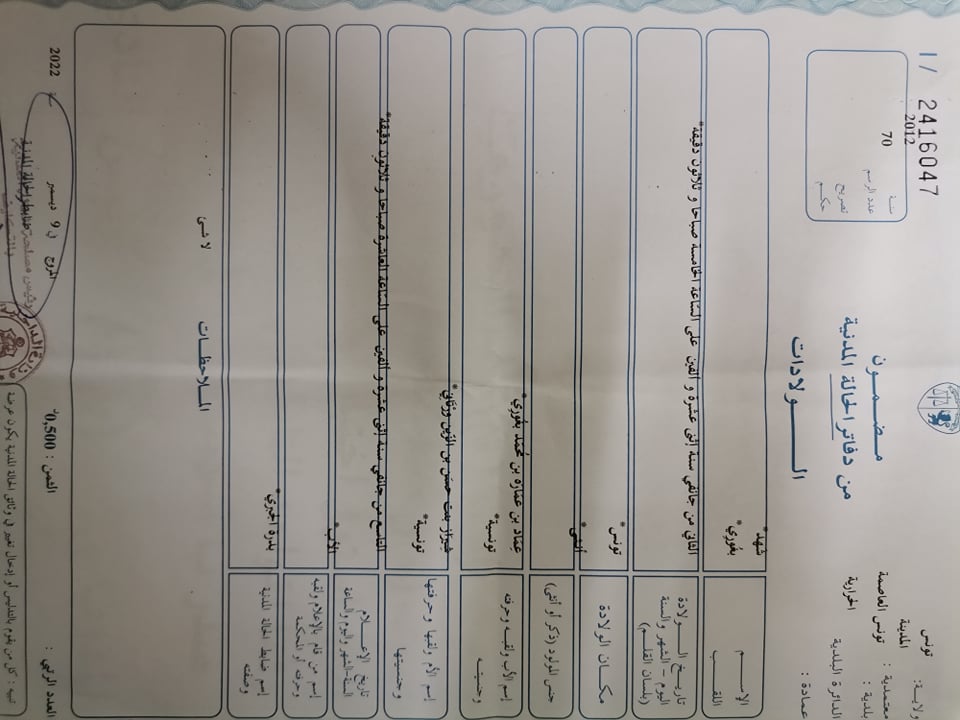 1/ 2416047
ولاية: تونس
معتمدية : المدينة
بلدية : تونس العاصمة
الدائرة البلدية الحرايرية
عمادة :
سنة 2012
عدد الرسم 70
تصريح
حكم
مضمون
من دفاتر الحالة المدنية
الولادات
الإسم شهد*
اللقب يغوري*
تاريخ الولادة
اليوم - الشهر والسنة
(بلسان القلم)
الثاني من جانفي سنة إثنى عشرة و ألفين على الساعة الخامسة صباحا و ثلاثون دقيقة*
مكان الولادة تونس*
جنس المولود (ذكر أو أنثى) أنثى*
إسم الأب ولقبه وحرفته
عماد بن عمارة بن محمد يغوري*
وجنسيته تونسية*
إسم الأم ولقبها وحرفتها
شيراز بنت حسن بن الزين ورتاني*
وجنسيتها تونسية*
تاريخ الإعلام
السنة-الشهر واليوم والساعة
التاسع من جانفي سنة إثنى عشرة و ألفين على الساعة العاشرة صباحا و ثلاثون دقيقة*
إسم من قام بالإعلام ولقبه
وحرفته أو المحكمة
الأب*
إسم ضابط الحالة المدنية
وصفته
بدرة الجبري*
الملاحظات
لا شئ
المروج في 9 ديسمبر 2022
العدد الرتبي :
الثمن : 0,500د
تنبيه : كل من يقوم بالتدليس أو إدخال تغيير في وثائق الحالة المدنية يكون عرضة